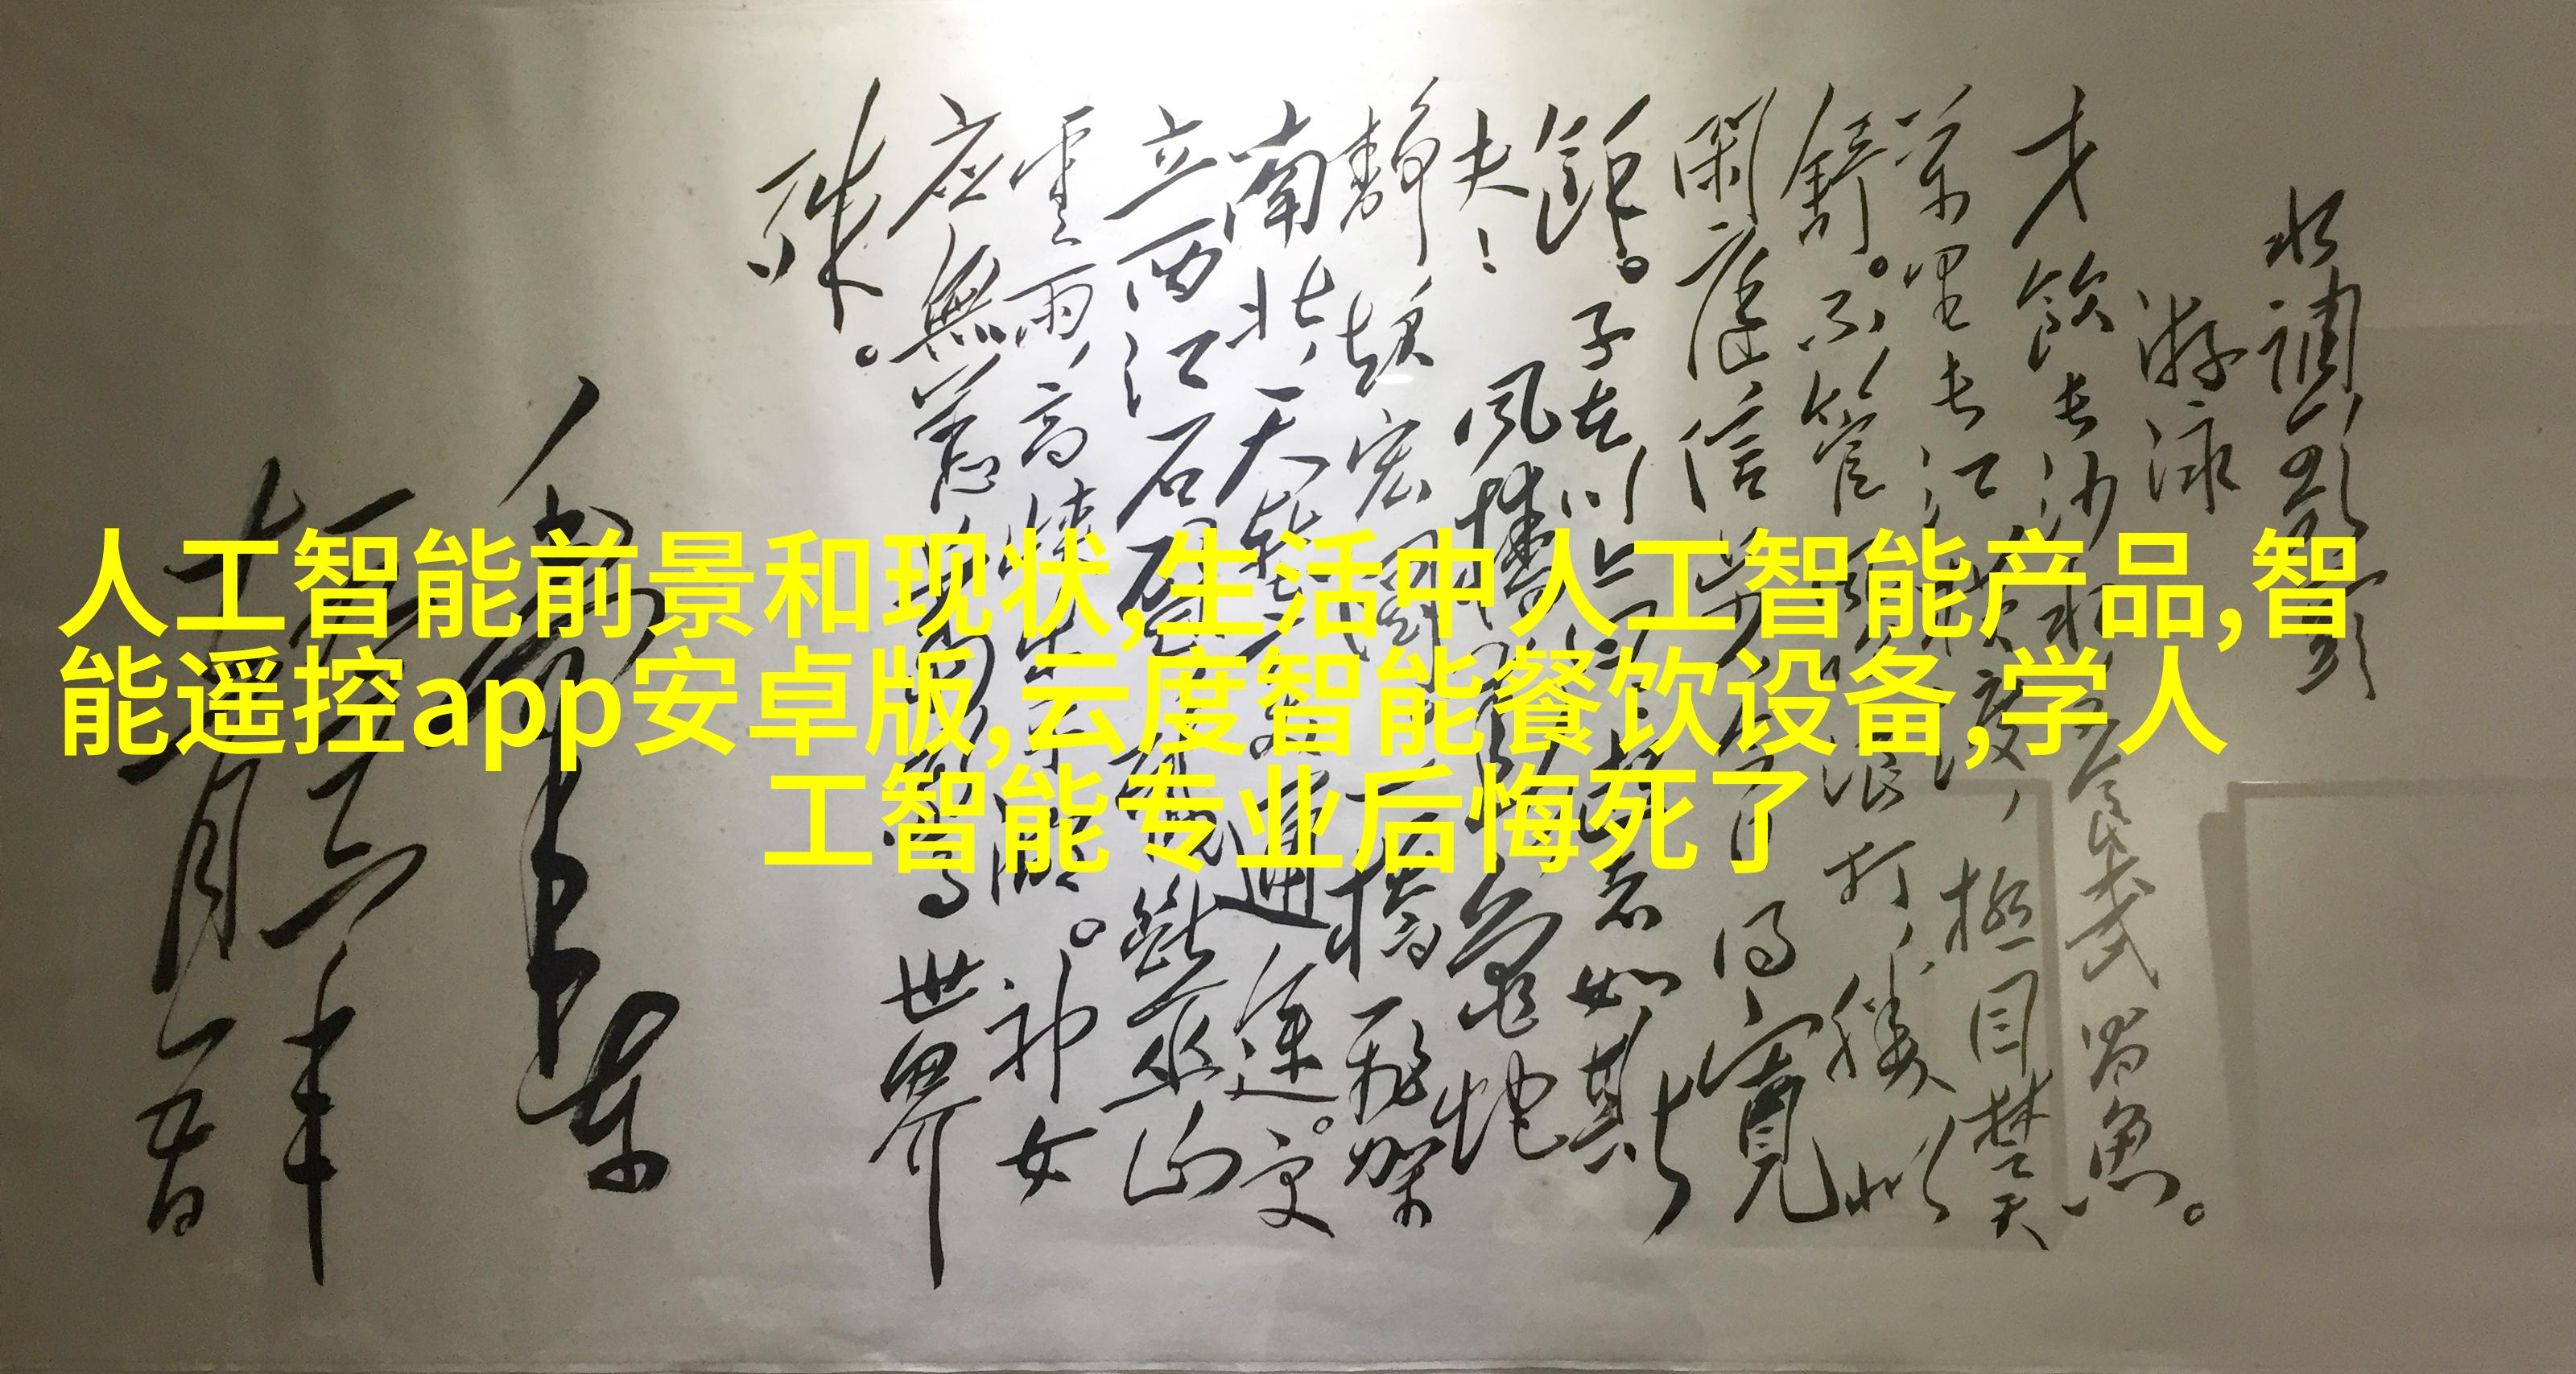 人工智能前景和现状,生活中人工智能产品,智
能遥控app安卓版,云度智能餐饮设备,学人
工智能专业后悔死了
水调歌头
游泳
才飲长沙水 又食武昌魚。
萬里长江横渡,极目楚天
舒。不管风吹浪打,勝似
闲庭信步,今日得寬
餘。子在川上曰:逝者如斯
夫! 風檣动,龟蛇
静,起宏图。一橋飞架
南北,天塹变通途。更
立西江石壁,截断巫山
雲雨,高峡出平湖。神女
应無恙,当惊世界
殊。